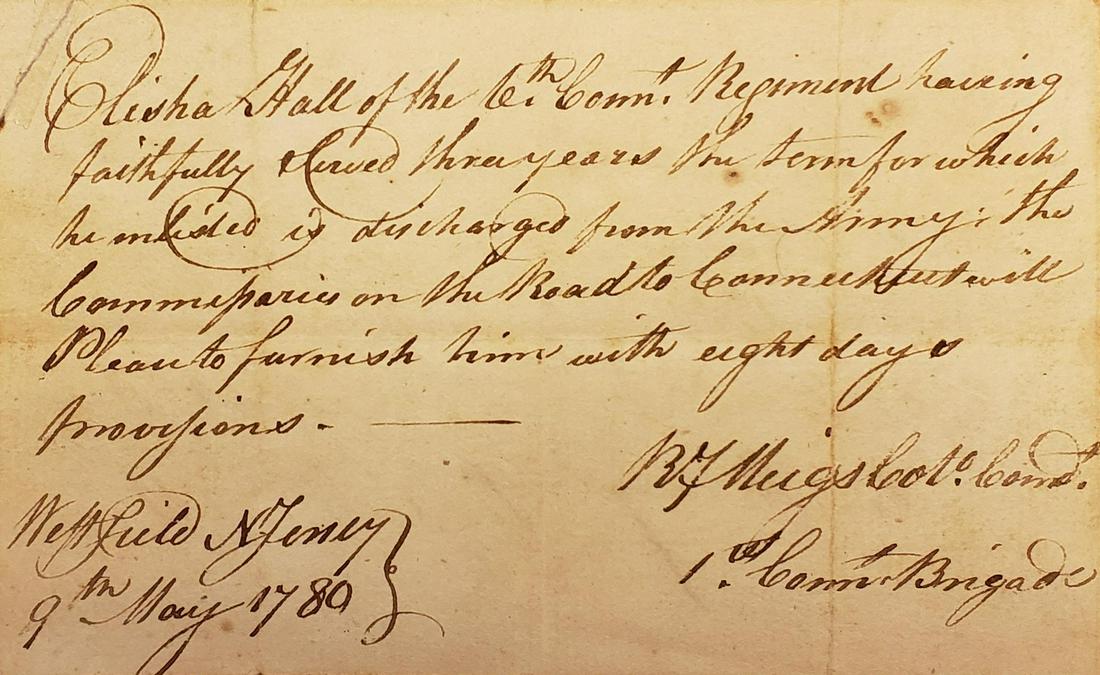 Elisha Hall of the 6th. Connt. Regiment having
faithfully Served three years the term for which
he inlisted is discharged from the Army; the
Commissaries on the Road to Connecticut will
Please to furnish him with eight days
provisions. —
RJ Meigs Colo. Comd.
1st. Connt. Brigade
Westfield N Jersey
9th May 1780